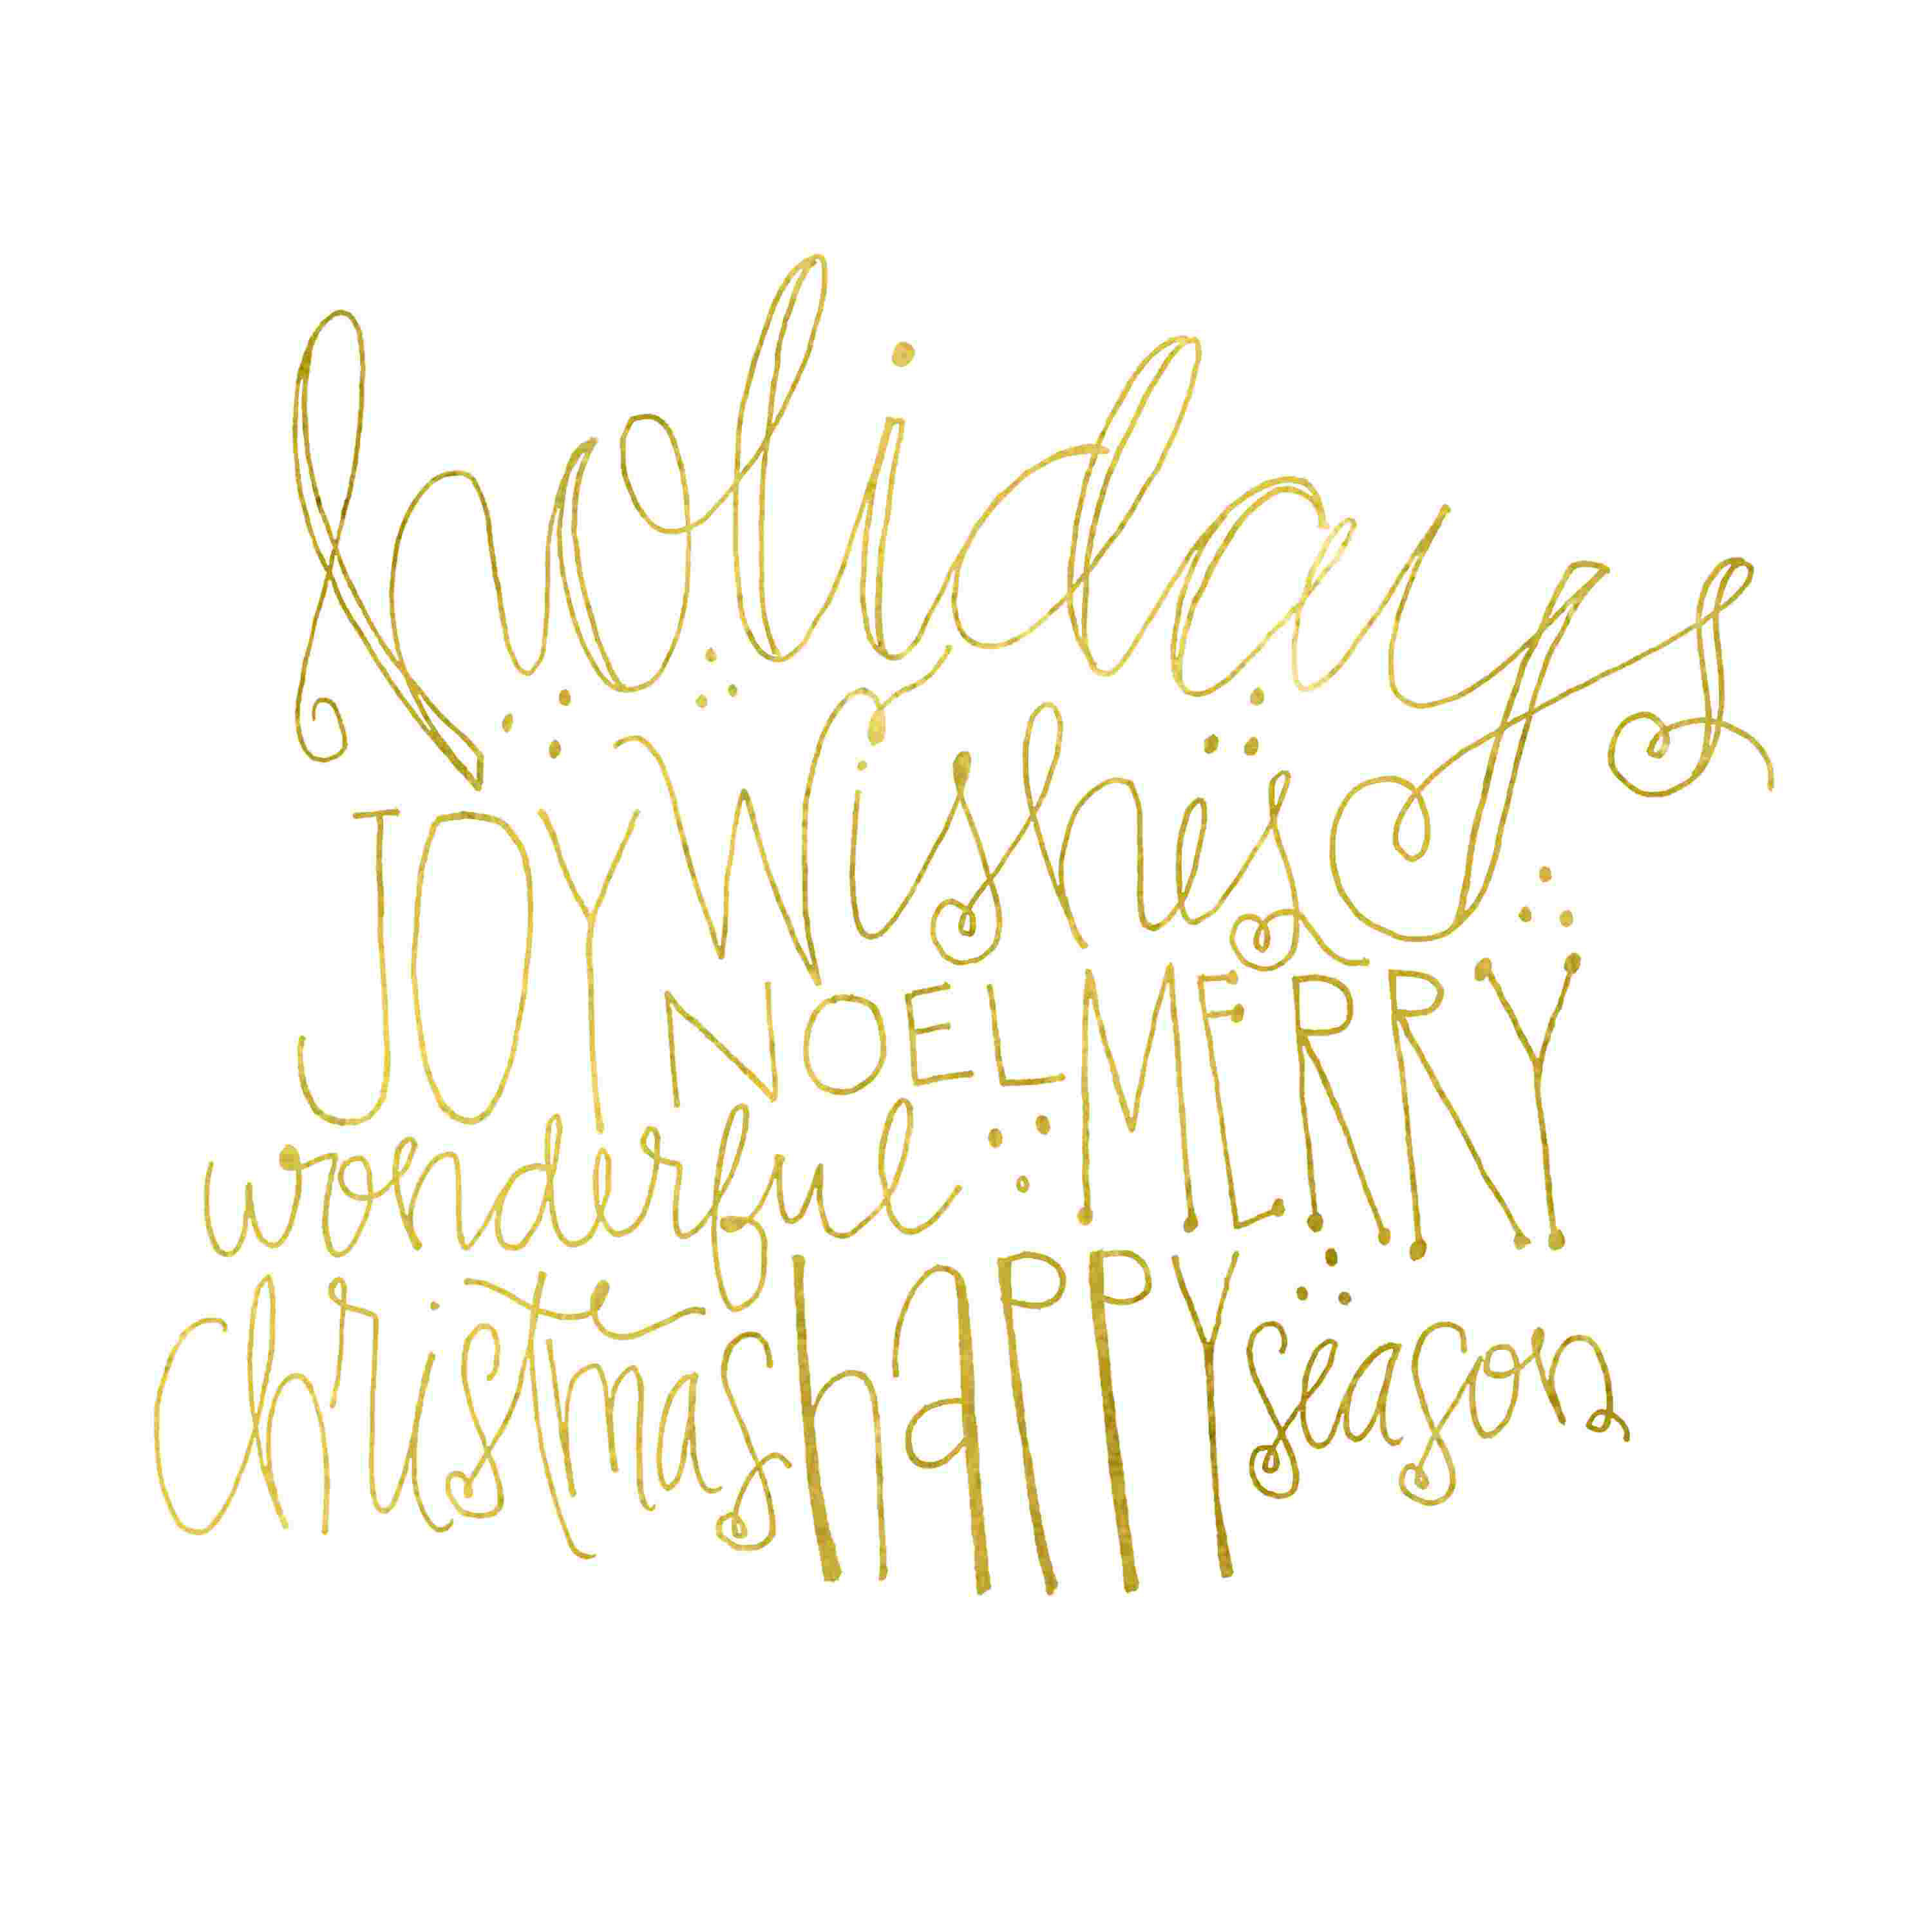 holidays
JOY Wishes
NOEL MERRY
wonderful
christmas hAPPY season